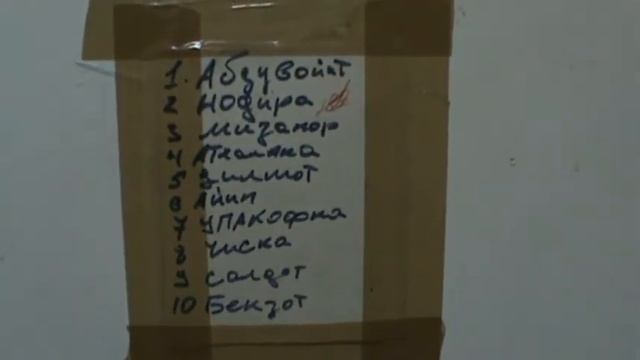 1. Абдувойт
2 Нодира
3 мизанор
4
5 Зилшот
6 Айип
7 УПАКОФКА
8 Чиска
9 солдот
10 Бекзот